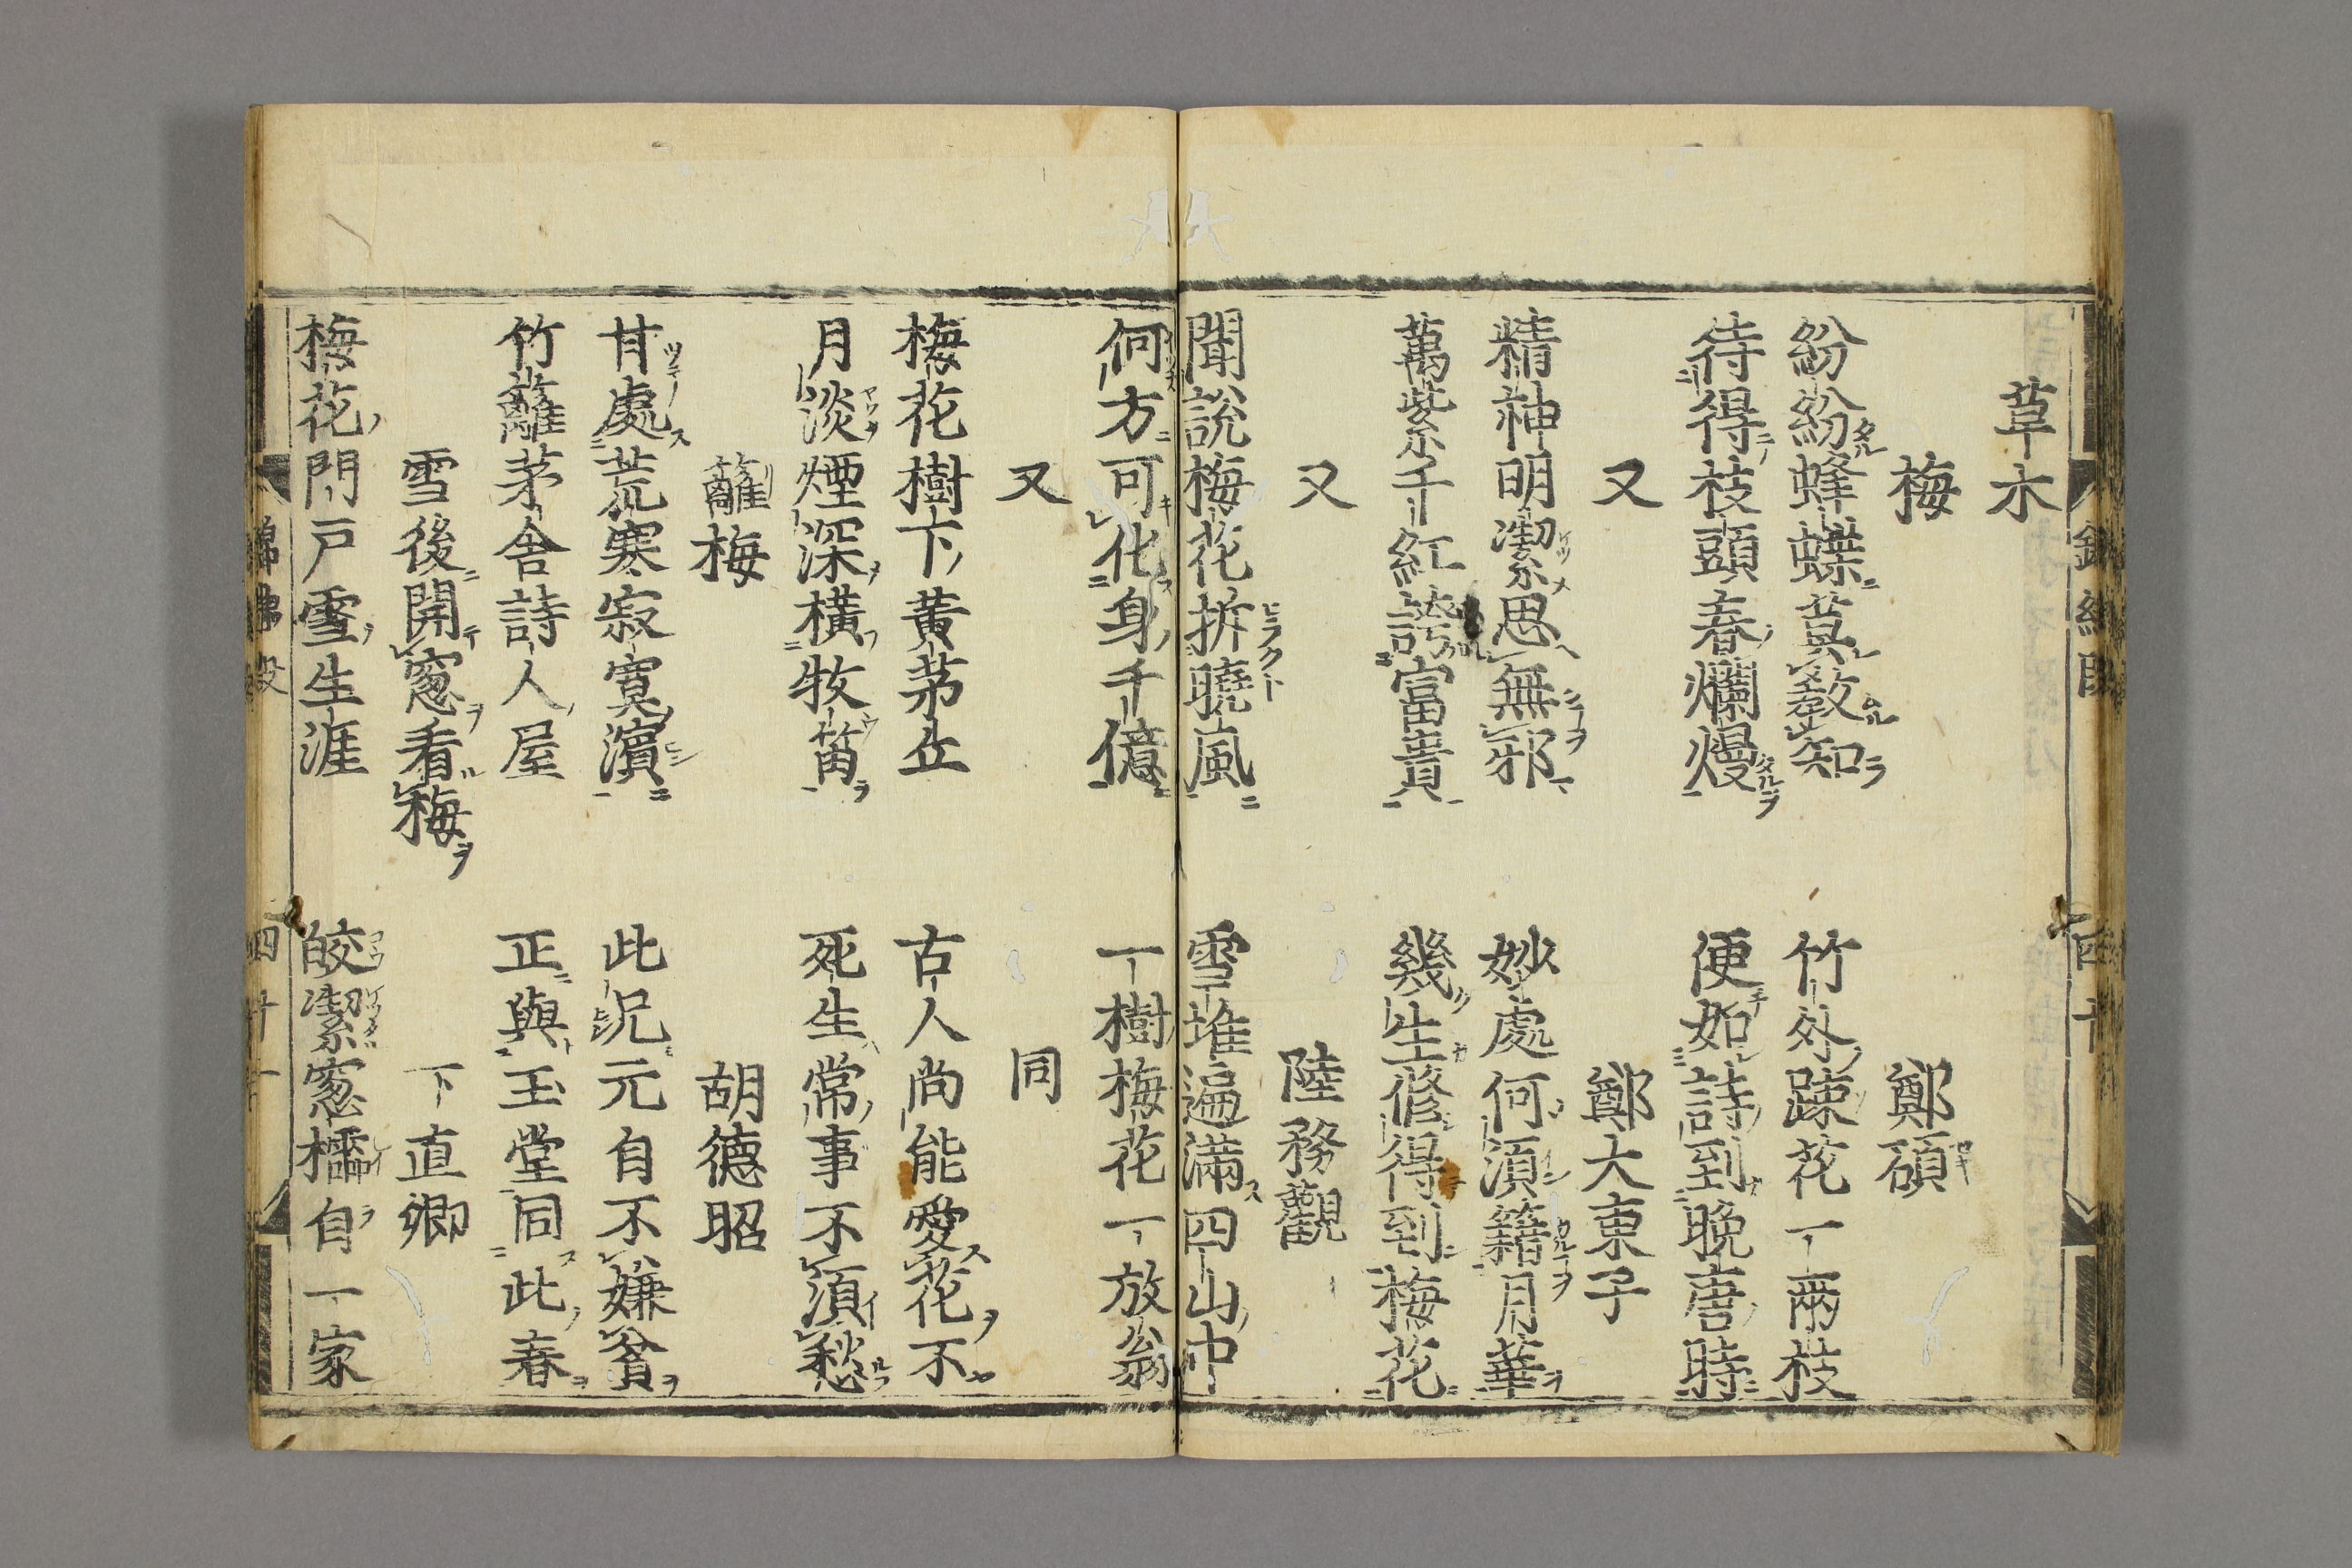 草木
梅 鄭碩
紛紛蜂蝶莫教知 竹外踈花一兩枝
待得枝頭春爛熳 便如詩到晚唐時
又 鄭大東子
精神明潔思無邪 妙處何須籍月華
萬紫千紅誇富貴 幾生修得到梅花
又 陸務觀
聞說梅花拆曉風 雪堆遍滿四山中
何方可化身千億 一樹梅花一放翁
又 同
梅花樹下黃茅丘 古人尚能愛花不
月淡煙深橫牧笛 死生常事不須愁
籬梅 胡德昭
甘處荒寒寂寞濱 此況元自不嫌貧
竹籬茅舍詩人屋 正與玉堂同此春
雪後開窓看梅 下直卿
梅花門戶雪生涯 皎潔窓櫺自一家
四十一